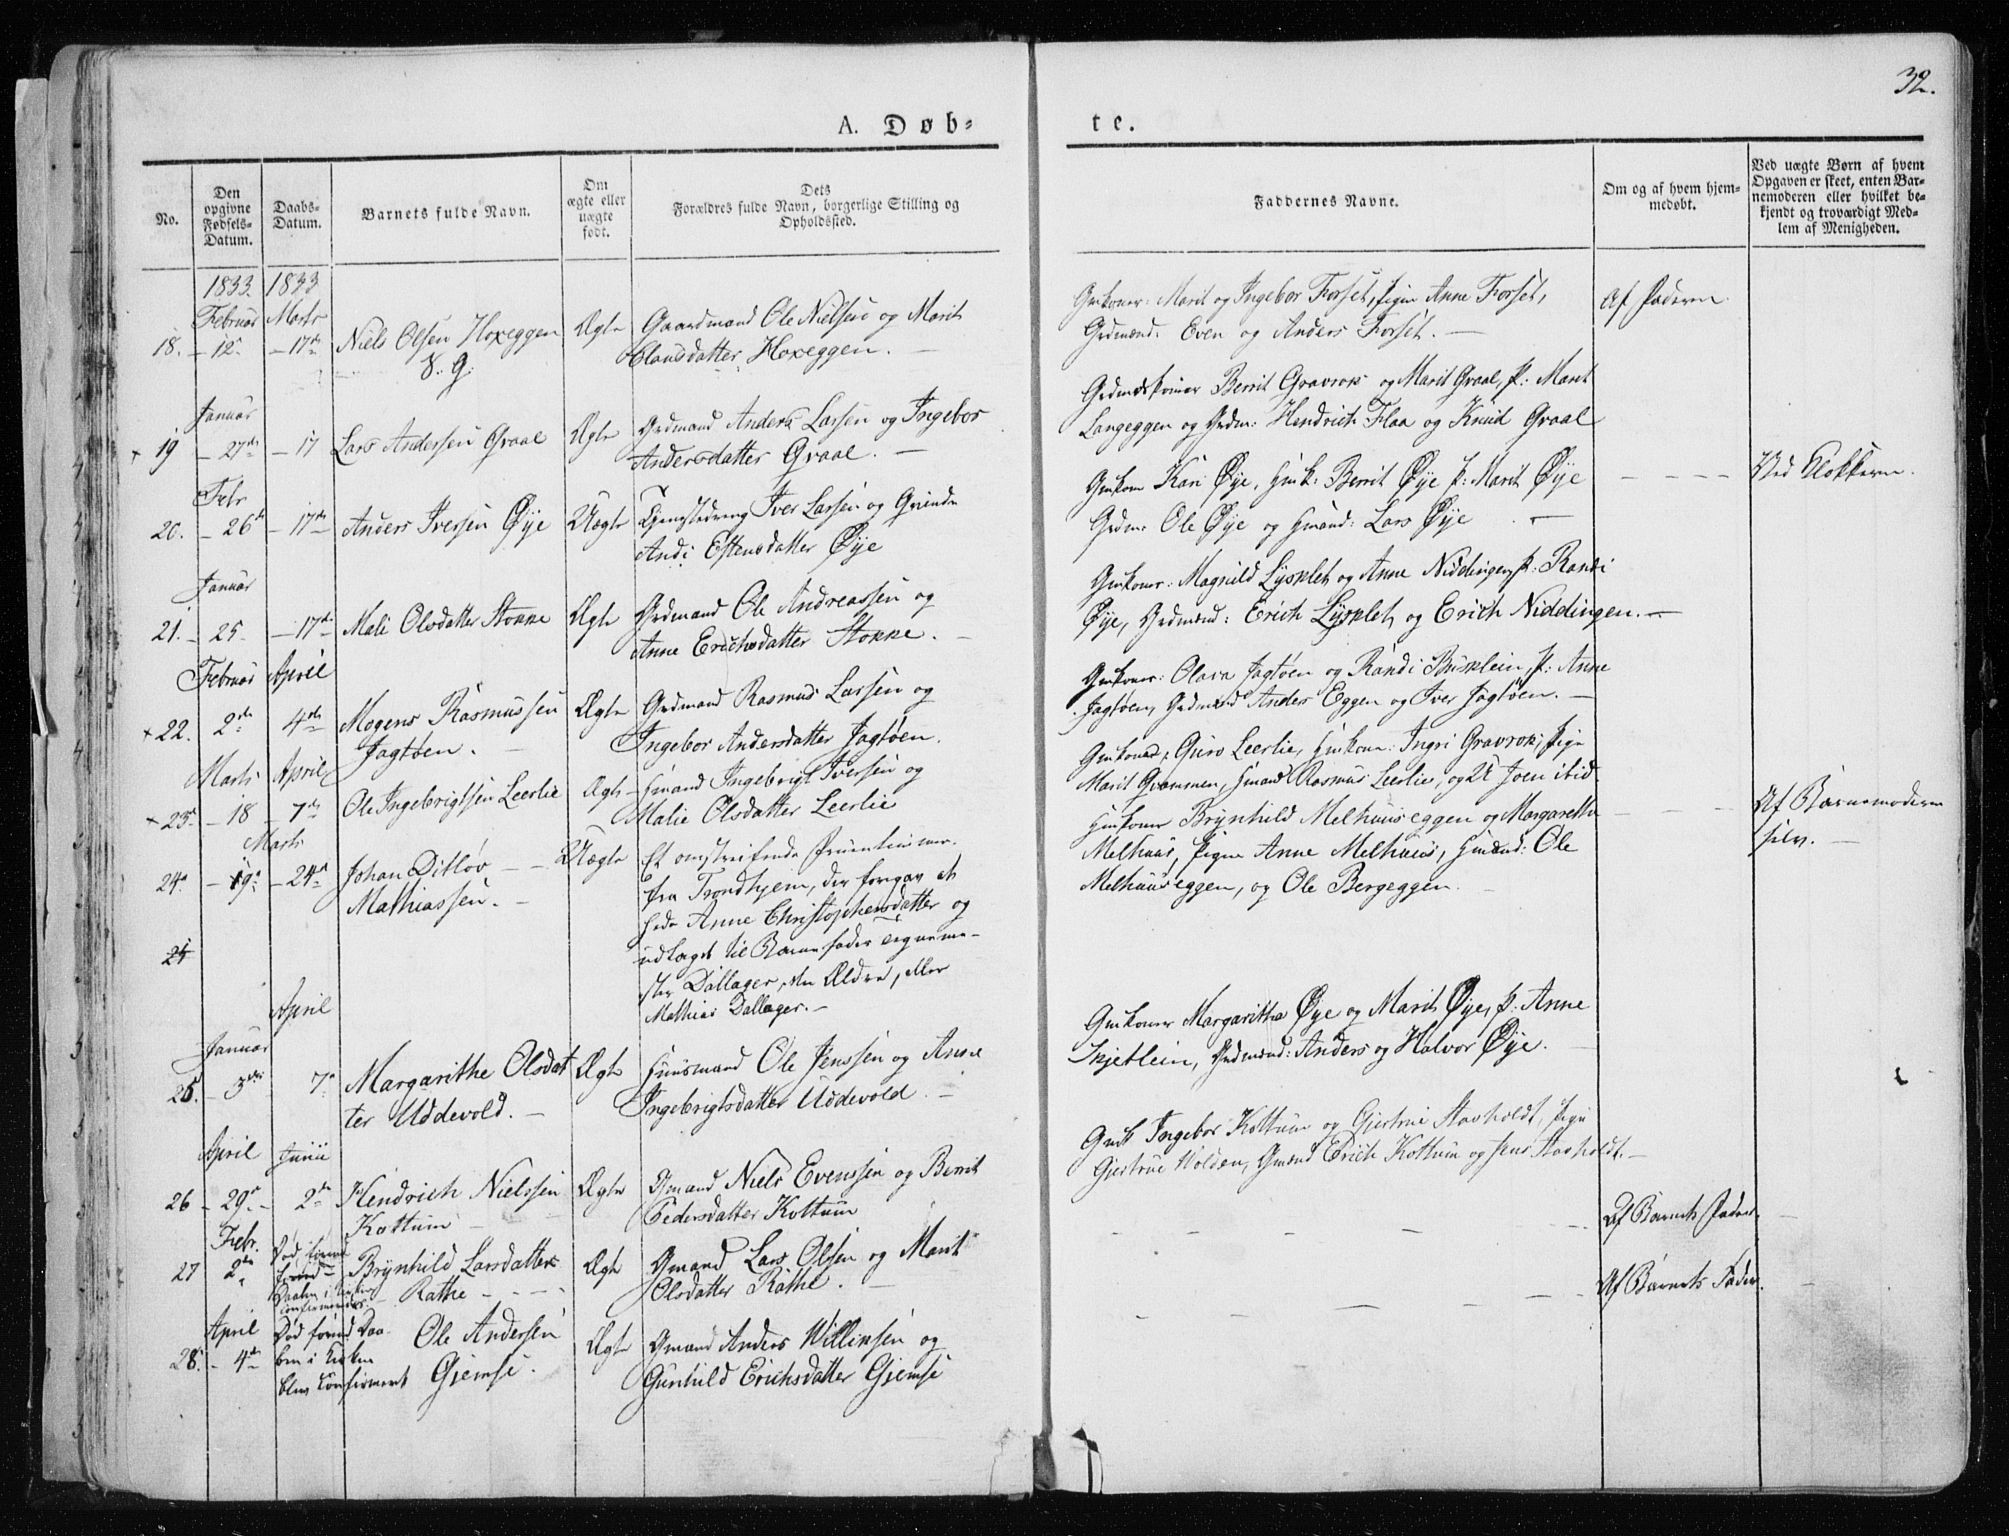 32.
A. Døb-
te.
No.
Den opgivne Fødsels-Datum.
Daabs-Datum.
Barnets fulde Navn.
Om ægte eller uægte født.
Dets Forældres fulde Navn, borgerlige Stilling og Opholdssted.
Faddernes Navne.
Om og af hvem hjem-medøbt.
Ved uægte Børn af hvem Opgaven er skeet, enten Bar-nemoderen eller hvilket be-kjendt og troværdigt Med-lem af Menigheden.
1833. 1833
Februar Marts
18. - 12. - 17de Niels Olsen Hoxeggen Ægte Gaardmand Ole Nielsen og Marit
Clausdatter Hoxeggen. -
Marit og Ingebor Forset, Pigen Anne Forset,
Grdmænd: Even og Anders Forset. -
Af Faderen
Januar
19 - 27de - 17 Lars Andersen Graal Ægte Grdmand Anders Larsen og Ingebor
Andersdatter Graal. -
Berrit Gravrok og Marit Graal, P: Marit
Langeggen og Grdm: Hendrich Flaa og Knud Graal
Febr
20. - 26de - 17de Anders Iversen Øye Uægte Tjenestedreng Iver Larsen og Qvinde
Andi Estensdatter Øye
Kari Øye, Berrit Øye P: Marit Øye
Grdm: Ole Øye og Hmand: Lars Øye -
Ved Klokkeren.
Januar
21. - 25 - 17de Mali Olsdatter Stokke Ægte Grdmand Ole Andreassen og
Anne Erichsdatter Stokke. -
Magnild Lysklet og Anne Niddingen, P: Randi
Øye, Grdmænd: Erich Lysklet, og Erich Niddingen. -
Februar April
x 22. 2de 4de Mogens Rasmussen Ægte Grdmand Rasmus Larsen og
Jagtøen. - Ingebor Andersdatter Jagtøen.
Olava Jagtøen og Randi Busklein, P: Anne
Jagtøen, Grdmænd Anders Eggen og Iver Jagtøen. -
Marts April
x 23 - 18 - 7de Ole Ingebrigtsen Leerlie Ægte - Hmand Ingebrigt Iversen og
Malie Olsdatter Leerlie
Guro Leerlie, Ingri Gravrok, Pige
Marit Qvammen, Hmand Rasmus Leerlie, og Joen ibid
Marts
24. - 19. - 24de Johan Ditløv - Uægte Et omstreifende Fruentimmer
Mathiassen. - fra Trondhjem, der foregav at
hede Anne Christophersdatter og
udlagde til Barnefader
Dallager, den Ældre, eller
Mathias Dallager. -
Brynhild Melhuuseggen og Margaretha
Melhuus, Pigen Anne Melhuus, Hmænd: Ole
Melhuuseggen, og Ole Bergeggen.
Af Barnemoderen
selv. -
25
April
Januar
25. - 3die 7. Margarithe Olsdat Ægte Huusmand Ole Jenssen og Anne
ter Uddevold. - Ingebrigtsdatter Uddevold. -
Margaritha Øye og Marit Øye, P: Anne
Skjetlein, Grdmænd: Anders og Halvor Øye.
April Junii
26 - 29. - 2de Hendrich Nielssen Ægte Gmand Niels Evenssen og Berrit
Kottum - Pedersdatter Kottum
Ingebor Kottum og Gjertrue Stavholdt, Pige
Gjertrue Volden, Gmænd Erich Kottum og Jens Stavholdt. -
Febr.
27 2de Død
Daaben i Kirken
confirmeredes. Brynhild Larsdatter Ægte Gmand Lars Olsen og Marit
Rathe - - - - Olsdatter Rathe. -
Af Barnets Fader.
April
28. - 4de Død førend Daa-
ben i Kirken
blev confirmeret Ole Andersen Ægte Gmand Anders Willinsen og
Gjemse. Gunhild Erichsdatter Gjemse
Af Barnets Fader.